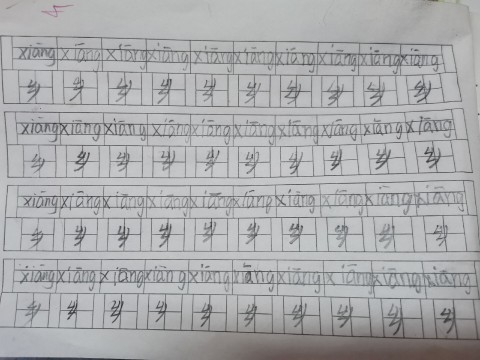 xiāng xiāng xiāng xiāng xiāng xiāng xiāng xiāng xiāng xiāng
乡 乡 乡 乡 乡 乡 乡 乡 乡 乡
xiāng xiāng xiāng xiāng xiāng xiāng xiāng xiāng xiāng xiāng
乡 乡 乡 乡 乡 乡 乡 乡 乡 乡
xiāng xiāng xiāng xiāng xiāng xiāng xiāng xiāng xiāng xiāng
乡 乡 乡 乡 乡 乡 乡 乡 乡 乡
xiāng xiāng xiāng xiāng xiāng xiāng xiāng xiāng xiāng xiāng
乡 乡 乡 乡 乡 乡 乡 乡 乡 乡